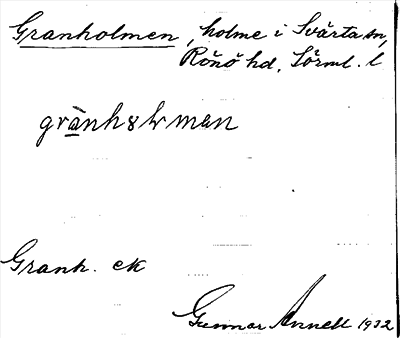 Granholmen, holme i Svärta sn,
Rönö hd. Sörml. l
grành8lrmen
Granh. ek
Gunnar Annell 1932